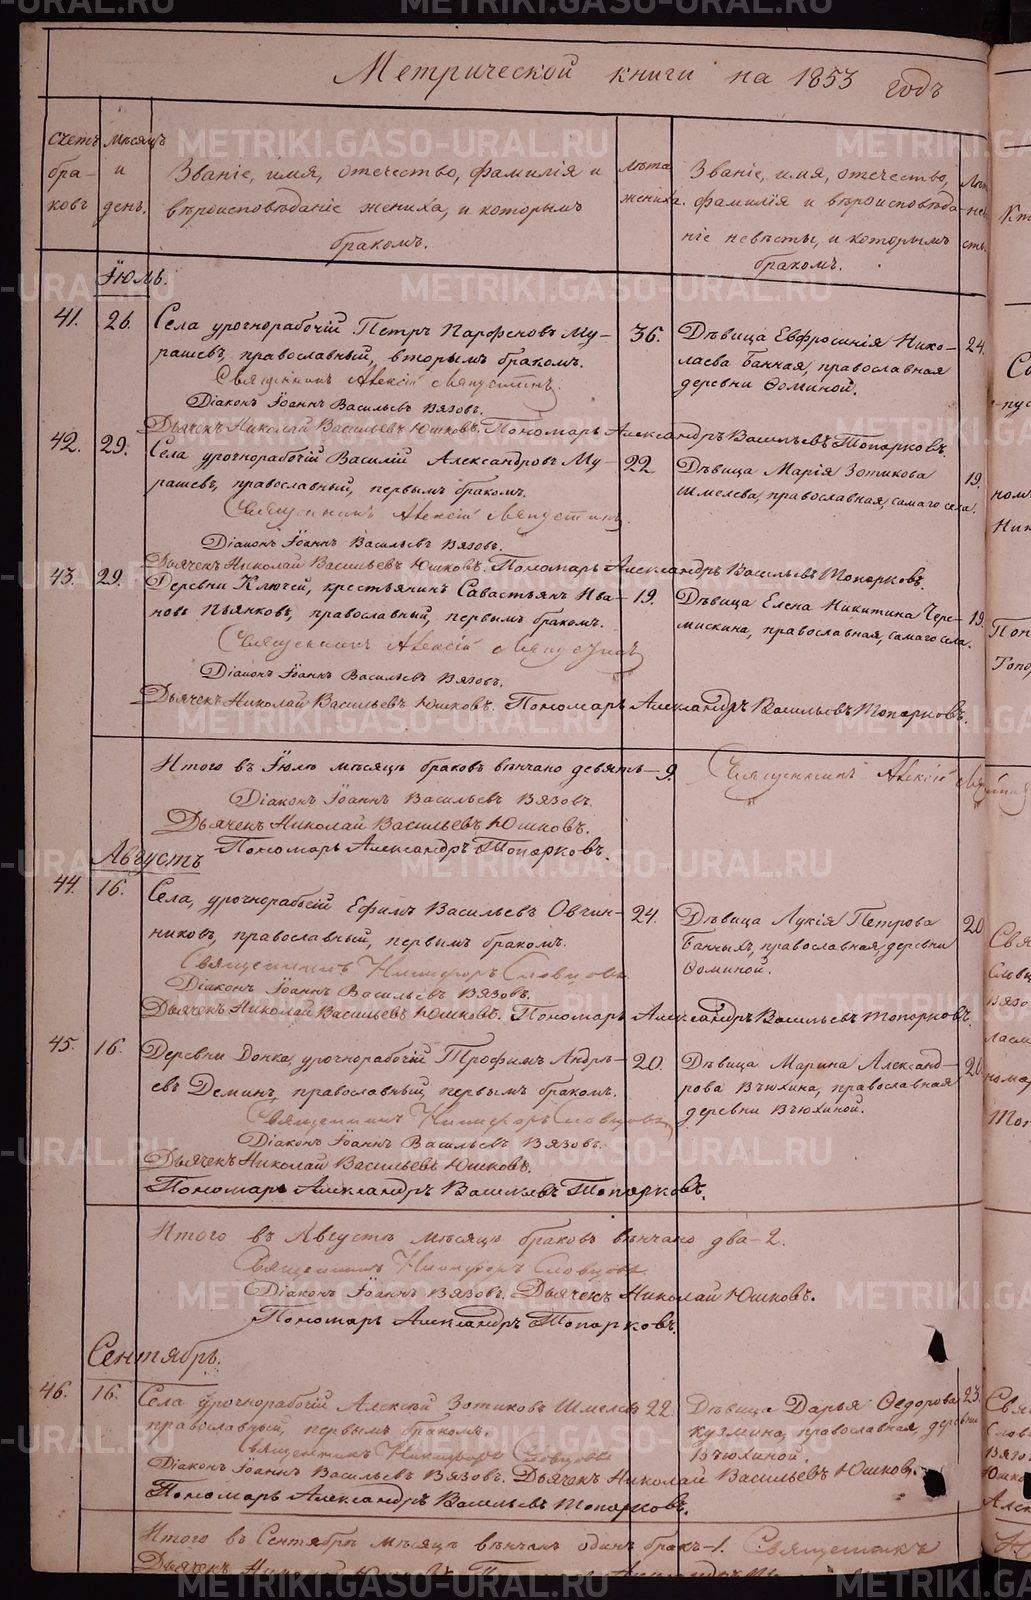 Метрической книги на 1853 годъ
Счетъ браковъ
Мѣсяцъ и день.
Званіе, имя, отечество, фамилія и
вѣроисповѣданіе жениха, и которымъ
бракомъ.
Лѣта жениха.
Званіе, имя, отечество,
фамилія и вѣроисповѣда-
ніе невѣсты, и которымъ
бракомъ.
Іюль.
41. 26. Села урочнорабочій Петръ Парфеновъ Му- 36. Дѣвица Евфросинія Нико- 24.
рашевъ, православный, вторымъ бракомъ. лаева Банная, православная
деревни Ѳоминой.
Священникъ Алексій Ляпустинъ
Діаконъ Іоаннъ Васильевъ Вязовъ.
Дьячекъ Николай Васильевъ Юшковъ. Пономарь Александръ Васильевъ Топорковъ.
42. 29. Села урочнорабочій Василій Александровъ Му- 22 Дѣвица Марія Зотикова 19.
рашевъ, православный, первымъ бракомъ. Шмелева, православная, самаго села.
Священникъ Алексій Ляпустинъ
Діаконъ Іоаннъ Васильевъ Вязовъ.
Дьячекъ Николай Васильевъ Юшковъ. Пономарь Александръ Васильевъ Топорковъ.
43. 29. Деревни Ключей, крестьянинъ Савастьянъ Ива- 19. Дѣвица Елена Никитина Чере- 19.
новъ Пьянковъ, православный, первымъ бракомъ. мискина, православная, самаго села.
Священникъ Алексій Ляпустинъ
Діаконъ Іоаннъ Васильевъ Вязовъ.
Дьячекъ Николай Васильевъ Юшковъ. Пономарь Александръ Васильевъ Топорковъ.
Итого въ Іюлѣ мѣсяцѣ браковъ вѣнчано девять-9. Священникъ Алексій
Діаконъ Іоаннъ Васильевъ Вязовъ.
Дьячекъ Николай Васильевъ Юшковъ.
Пономарь Александръ Топорковъ.
Августъ
44. 16. Села, урочнорабочій Ефимъ Васильевъ Овчин- 24. Дѣвица Лукія Петрова 20
никовъ, православный, первымъ бракомъ. Банныхъ, православная, деревни
Ѳоминой.
Священникъ Никифоръ Словцовъ
Діаконъ Іоаннъ Васильевъ Вязовъ.
Дьячекъ Николай Васильевъ Юшковъ. Пономарь Александръ Васильевъ Топорковъ.
45. 16. Деревни Донка, урочнорабочій Трофимъ Андрѣ- 20. Дѣвица Марина Александ- 20
евъ Деминъ, православный, первымъ бракомъ. рова Вьюхина, православная
деревни Вьюхиной.
Священникъ Никифоръ Словцовъ
Діаконъ Іоаннъ Васильевъ Вязовъ.
Дьячекъ Николай Васильевъ Юшковъ.
Пономарь Александръ Васильевъ Топорковъ.
Итого въ Августѣ мѣсяцѣ браковъ вѣнчано два-2.
Священникъ Никифоръ Словцовъ
Діаконъ Іоаннъ Вязовъ. Дьячекъ Николай Юшковъ.
Пономарь Александръ Топорковъ.
Сентябрь.
46. 16. Села урочнорабочій Алексѣй Зотиковъ Шмелевъ 22. Дѣвица Дарья Ѳедорова 23
православный, первымъ бракомъ. Кузмина, православная, деревни
Вьюхиной.
Священникъ Никифоръ Словцовъ
Діаконъ Іоаннъ Васильевъ Вязовъ. Дьячекъ Николай Васильевъ Юшковъ.
Пономарь Александръ Васильевъ Топорковъ.
Итого въ Сентябрѣ мѣсяцѣ вѣнчанъ одинъ бракъ-1. Священникъ
METRIKI.GASO-URAL.RU